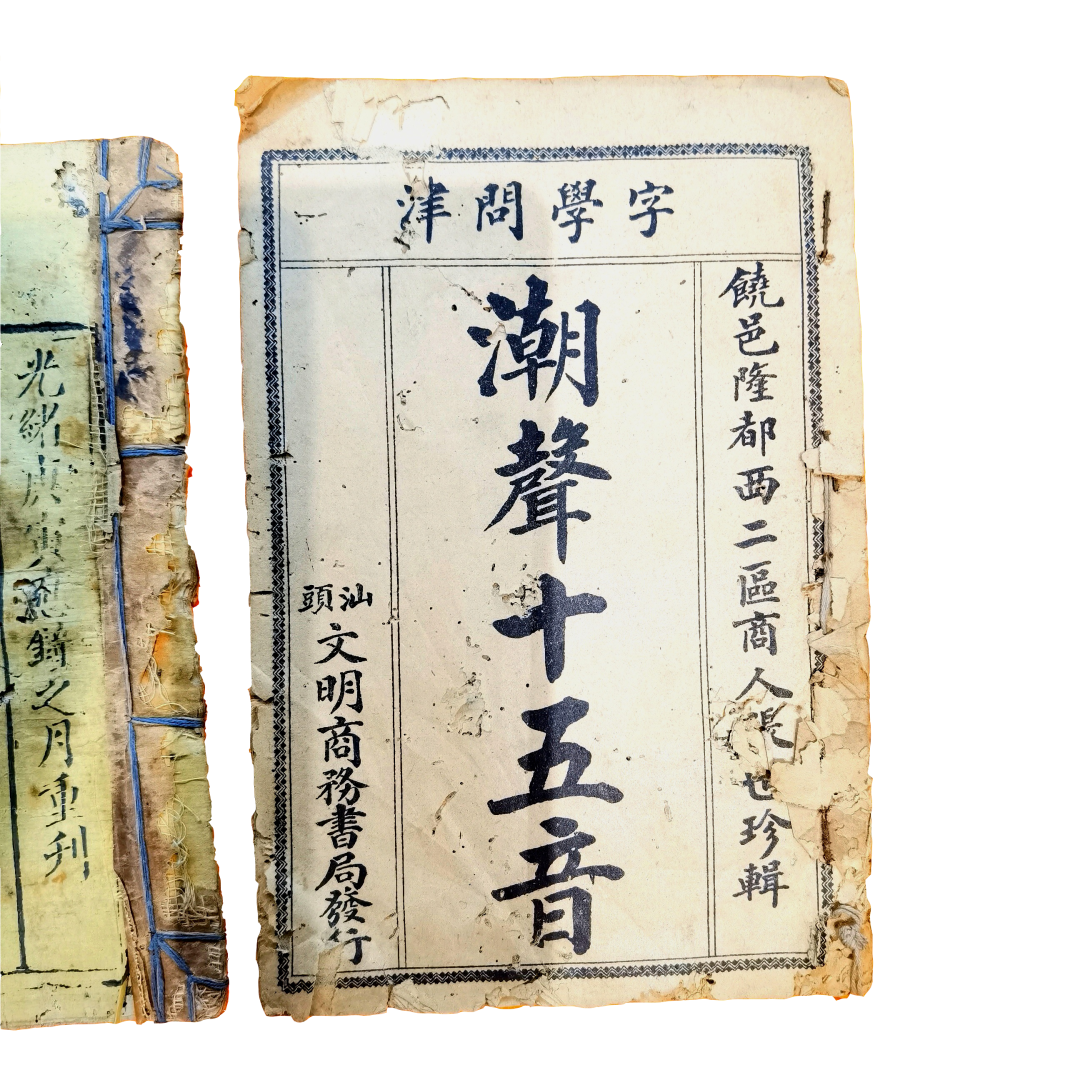 字學問津
饒邑隆都西二區商人張世珍輯
潮聲十五音
汕頭
文明商務書局發行
光緒庚寅之月重刊